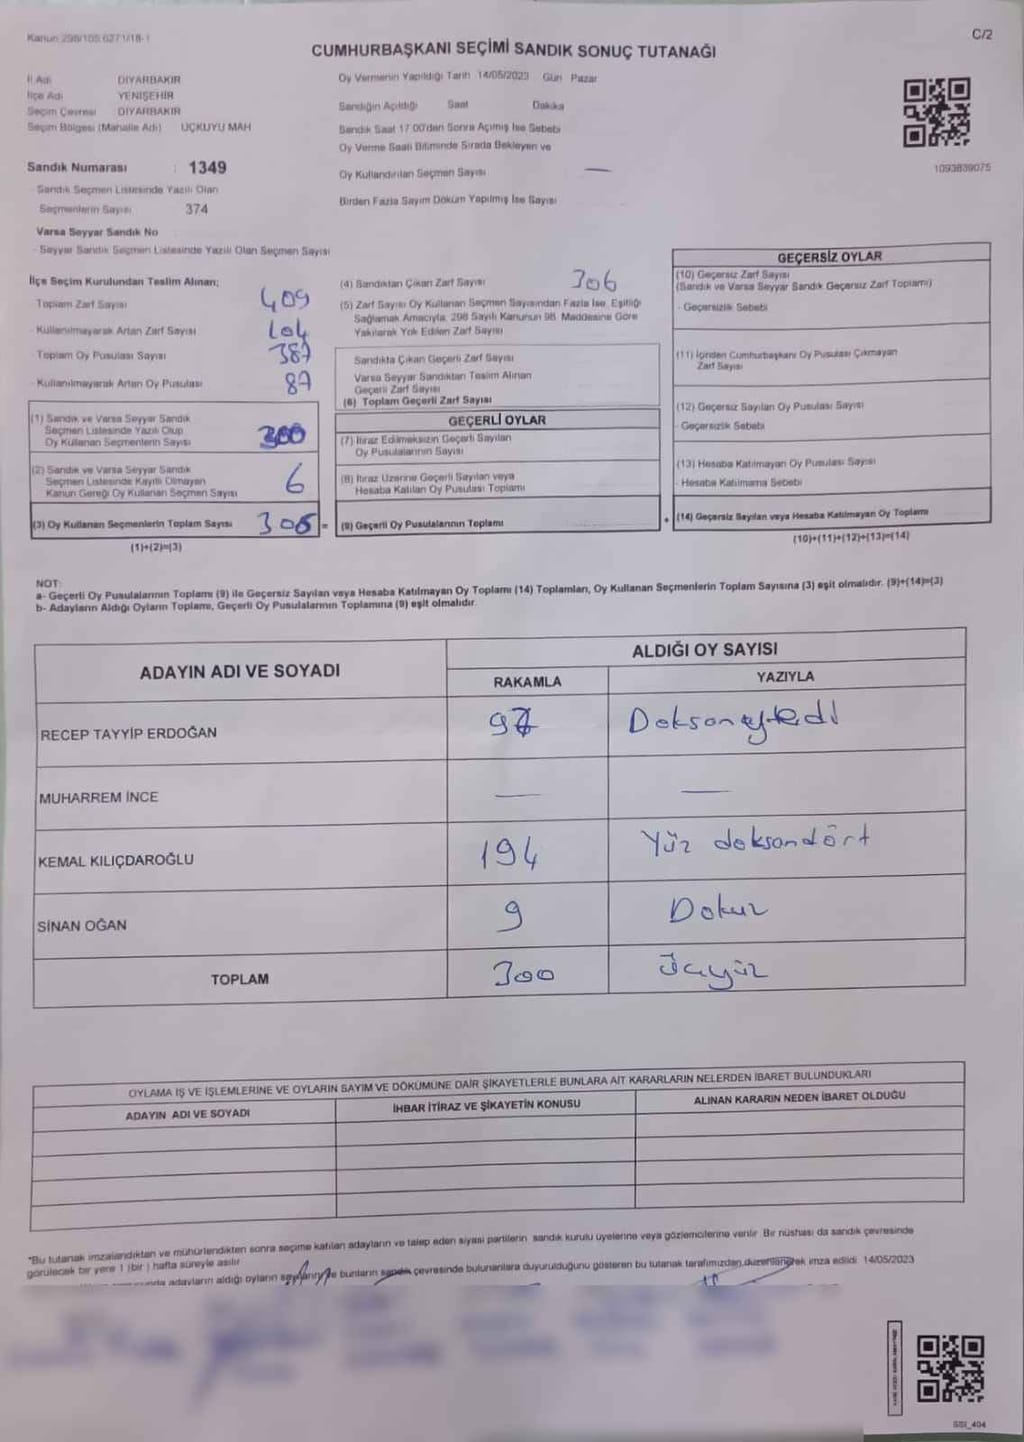 Kanun 298/105 6271/18-1
C/2
CUMHURBAŞKANI SEÇİMİ SANDIK SONUÇ TUTANAĞI
İl Adı DİYARBAKIR
İlçe Adı YENİŞEHİR
Seçim Çevresi DİYARBAKIR
Seçim Bölgesi (Mahalle Adı) UÇKUYU MAH
Oy Vermenin Yapıldığı Tarih 14/05/2023 Gün Pazar
Sandığın Açıldığı Saat Dakika
Sandık Saat 17 00'den Sonra Açımış İse Sebebi
Oy Verme Saati Bitiminde Sırada Bekleyen ve
Oy Kullandırılan Seçmen Sayısı —
Birden Fazla Sayım Döküm Yapılmış İse Sayısı
1093839075
Sandık Numarası : 1349
- Sandık Seçmen Listesinde Yazılı Olan
Seçmenlerin Sayısı 374
Varsa Seyyar Sandık No
- Seyyar Sandık Seçmen Listesinde Yazılı Olan Seçmen Sayısı
İlçe Seçim Kurulundan Teslim Alınan;
Toplam Zarf Sayısı 409
- Kullanılmayarak Artan Zarf Sayısı 104
- Toplam Oy Pusulası Sayısı 387
- Kullanılmayarak Artan Oy Pusulası 87
(1) Sandık ve Varsa Seyyar Sandık
Seçmen Listesinde Yazılı Olup
Oy Kullanan Seçmenlerin Sayısı 300
(2) Sandık ve Varsa Seyyar Sandık
Seçmen Listesinde Kayıtlı Olmayan
Kanun Gereği Oy Kullanan Seçmen Sayısı 6
(3) Oy Kullanan Seçmenlerin Toplam Sayısı =
(1)+(2)=(3)
(4) Sandıktan Çıkan Zarf Sayısı 306
(5) Zarf Sayısı Oy Kullanan Seçmen Sayısından Fazla İse, Eşitliği
Sağlamak Amacıyla, 298 Sayılı Kanunun 98. Maddesine Göre
Yakılarak Yok Edilen Zarf Sayısı
Sandıkta Çıkan Geçerli Zarf Sayısı
Varsa Seyyar Sandıktan Teslim Alınan
Geçerli Zarf Sayısı
(6) Toplam Geçerli Zarf Sayısı
GEÇERLİ OYLAR
(7) İtiraz Edilmeksizin Geçerli Sayılan
Oy Pusulalarının Sayısı
(8) İtiraz Üzerine Geçerli Sayılan veya
Hesaba Katılan Oy Pusulası Toplamı
(9) Geçerli Oy Pusulalarının Toplamı +
GEÇERSİZ OYLAR
(10) Geçersiz Zarf Sayısı
(Sandık ve Varsa Seyyar Sandık Geçersiz Zarf Toplamı)
- Geçersizlik Sebebi
(11) İçinden Cumhurbaşkanı Oy Pusulası Çıkmayan
Zarf Sayısı
(12) Geçersiz Sayılan Oy Pusulası Sayısı
- Geçersizlik Sebebi
(13) Hesaba Katılmayan Oy Pusulası Sayısı
- Hesaba Katılmama Sebebi
(14) Geçersiz Sayılan veya Hesaba Katılmayan Oy Toplamı
(10)+(11)+(12)+(13)=(14)
NOT:
a- Geçerli Oy Pusulalarının Toplamı (9) ile Geçersiz Sayılan veya Hesaba Katılmayan Oy Toplamı (14) Toplamları, Oy Kullanan Seçmenlerin Toplam Sayısına (3) eşit olmalıdır. (9)+(14)=(3)
b- Adayların Aldığı Oyların Toplamı, Geçerli Oy Pusulalarının Toplamına (9) eşit olmalıdır.
ADAYIN ADI VE SOYADI
ALDIĞI OY SAYISI
RAKAMLA YAZIYLA
RECEP TAYYİP ERDOĞAN 97 Doksanyedi
MUHARREM İNCE — —
KEMAL KILIÇDAROĞLU 194 Yüz doksandört
SİNAN OĞAN 9 Dokuz
TOPLAM 300 Üçyüz
OYLAMA İŞ VE İŞLEMLERİNE VE OYLARIN SAYIM VE DÖKÜMÜNE DAİR ŞİKAYETLERLE BUNLARA AİT KARARLARIN NELERDEN İBARET BULUNDUKLARI
ADAYIN ADI VE SOYADI İHBAR İTİRAZ VE ŞİKAYETİN KONUSU ALINAN KARARIN NEDEN İBARET OLDUĞU
*Bu tutanak imzalandıktan ve mühürlendikten sonra seçime katılan adayların ve talep eden siyasi partilerin sandık kurulu üyelerine veya gözlemcilerine verilir. Bir nüshası da sandık çevresinde
görülecek bir yere 1 (bir) hafta süreyle asılır
adayların aldığı oyların sayılarını ve bunların sandık çevresinde bulunanlara duyurulduğunu gösteren bu tutanak tarafımızdan düzenlenerek imza edildi 14/05/2023
SSI_404